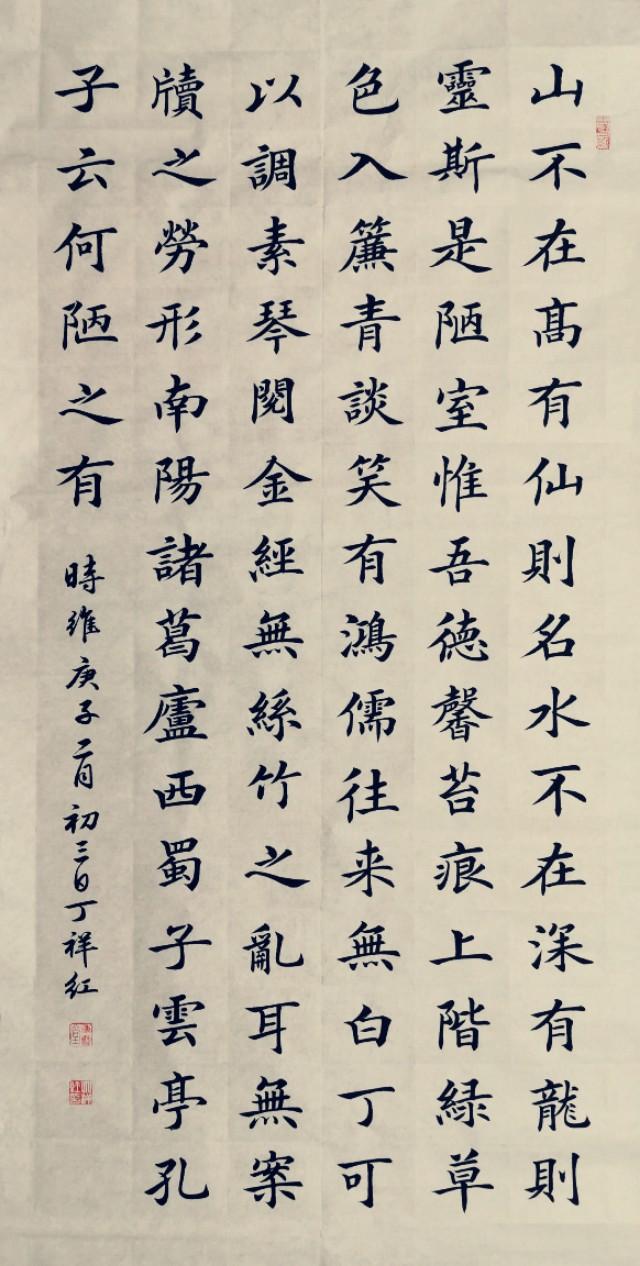 山不在高有仙則名水不在深有龍則
靈斯是陋室惟吾德馨苔痕上階緑草
色入簾青談笑有鴻儒往来無白丁可
以調素琴閱金經無絲竹之亂耳無案
牘之勞形南陽諸葛廬西蜀子雲亭孔
子云何陋之有
時維庚子二月初三日丁祥红